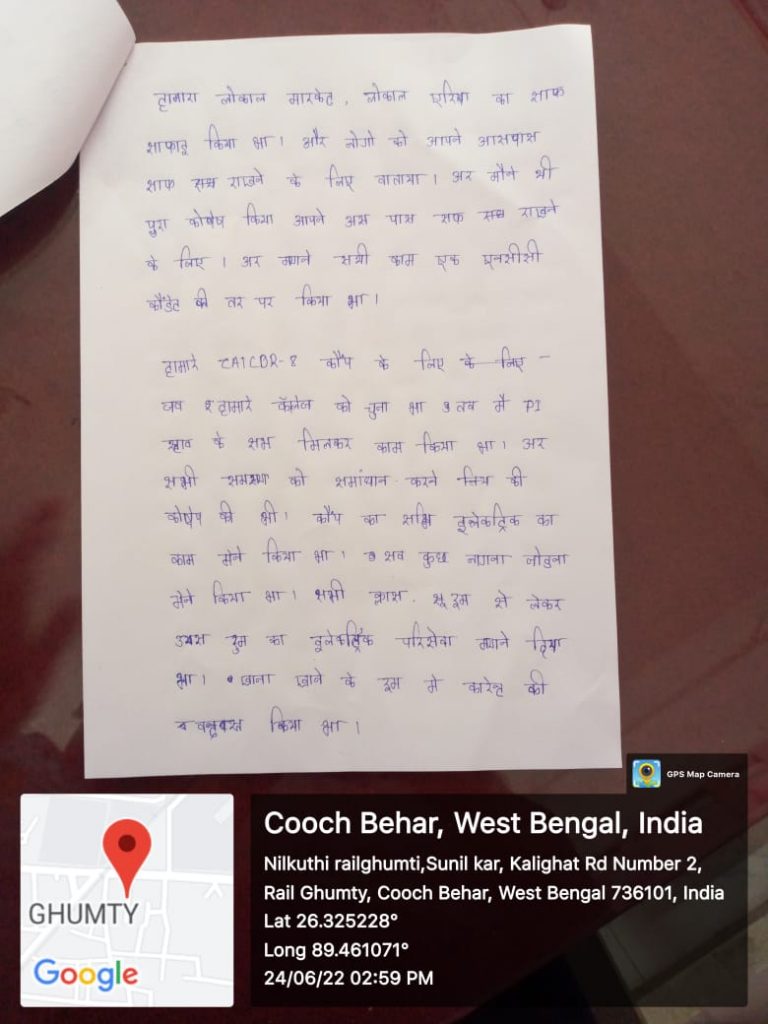 हामारा लोकाल मारकेट, लोकाल एरिया का शाफ
शाफाइ किया था। और लोगो को आपने आसपास
शाफ राखने के लिए वाताया। अर मैने भी
पुरा कोषेष किया आपने अस पास सफ राखने
के लिए। अर मैने सभी काम एक एनसीसी
कौडेट की तर पर किया था।
हामारे CATCBR-8 कैंप के लिए के लिए -
हामारे कॅलेज को चुना था तव मै PI
स्टाव के सभ मिलकर काम किया था। अर
सभी को समांधान करने की
कोषेष की थी। कैंप का सभि इलेकट्रिक का
काम मेने किया था। सव कुछ लागाना जोडना
मेने किया था। सभी क्लास रूम से लेकर
रुम का इलेकट्रिक परिसेवा मैने दिया
था। खाना खाने के रूम मे कारेन्ट की
किया था।
GPS Map Camera
Cooch Behar, West Bengal, India
Nilkuthi railghumti,Sunil kar, Kalighat Rd Number 2,
Rail Ghumty, Cooch Behar, West Bengal 736101, India
Lat 26.325228°
Long 89.461071°
24/06/22 02:59 PM
GHUMTY
Google